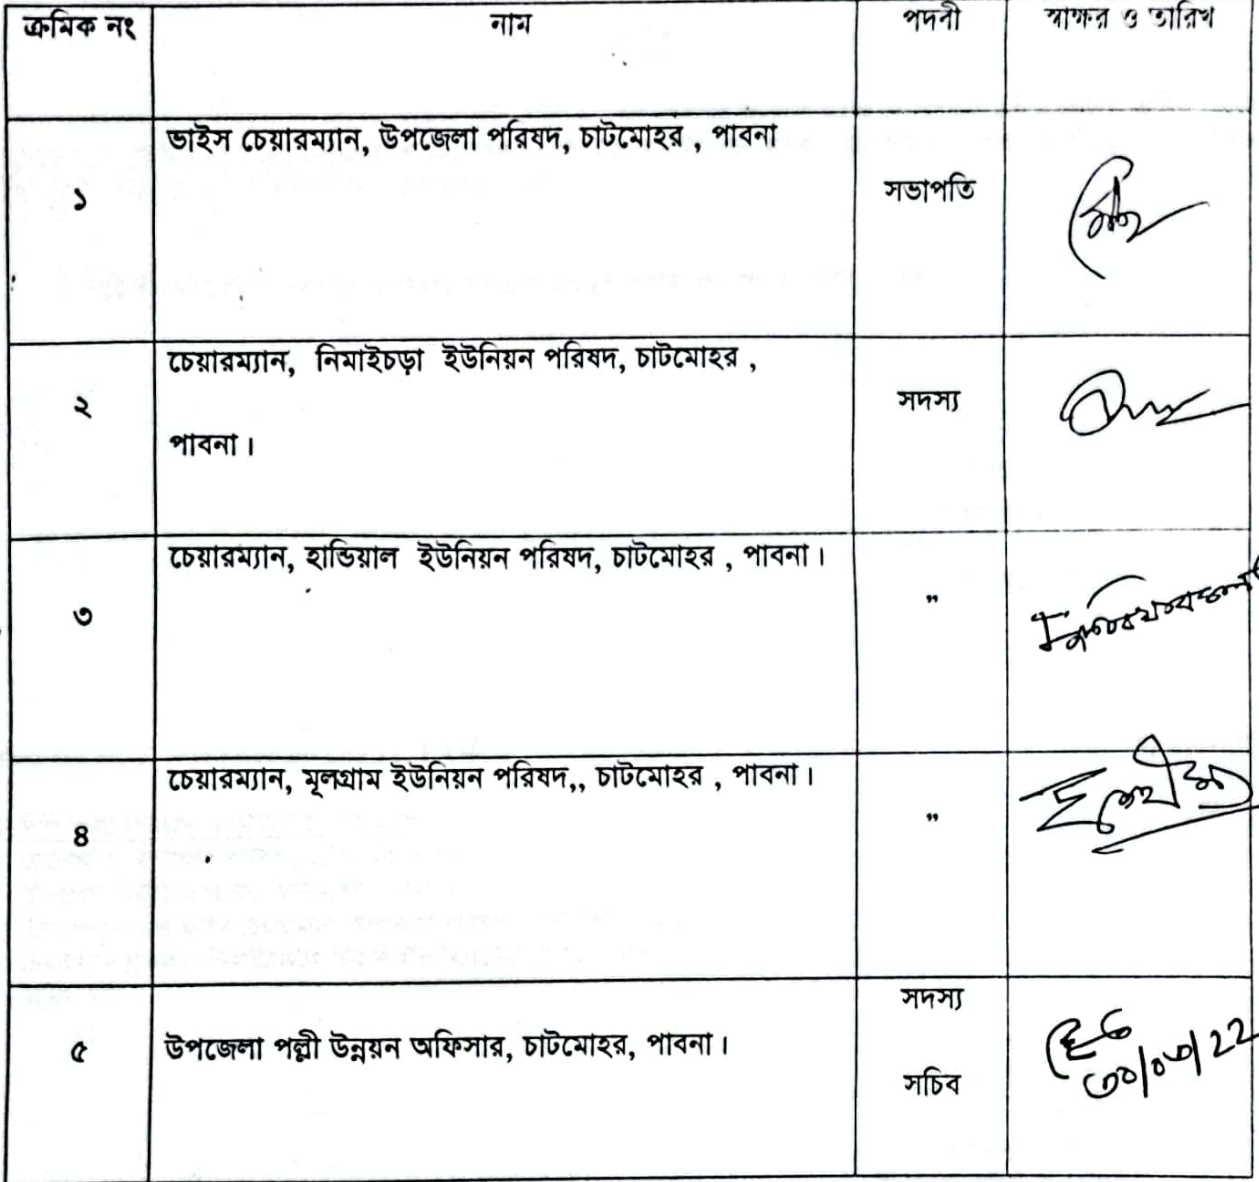 ক্রমিক নং নাম পদবী স্বাক্ষর ও তারিখ
ভাইস চেয়ারম্যান, উপজেলা পরিষদ, চাটমোহর , পাবনা
১ সভাপতি
চেয়ারম্যান, নিমাইচড়া ইউনিয়ন পরিষদ, চাটমোহর ,
২ সদস্য
পাবনা।
চেয়ারম্যান, হান্ডিয়াল ইউনিয়ন পরিষদ, চাটমোহর , পাবনা।
৩ ”
চেয়ারম্যান, মূলগ্রাম ইউনিয়ন পরিষদ,, চাটমোহর , পাবনা।
৪ ”
সদস্য
৫ উপজেলা পল্লী উন্নয়ন অফিসার, চাটমোহর, পাবনা।
সচিব
৩০/০৩/22